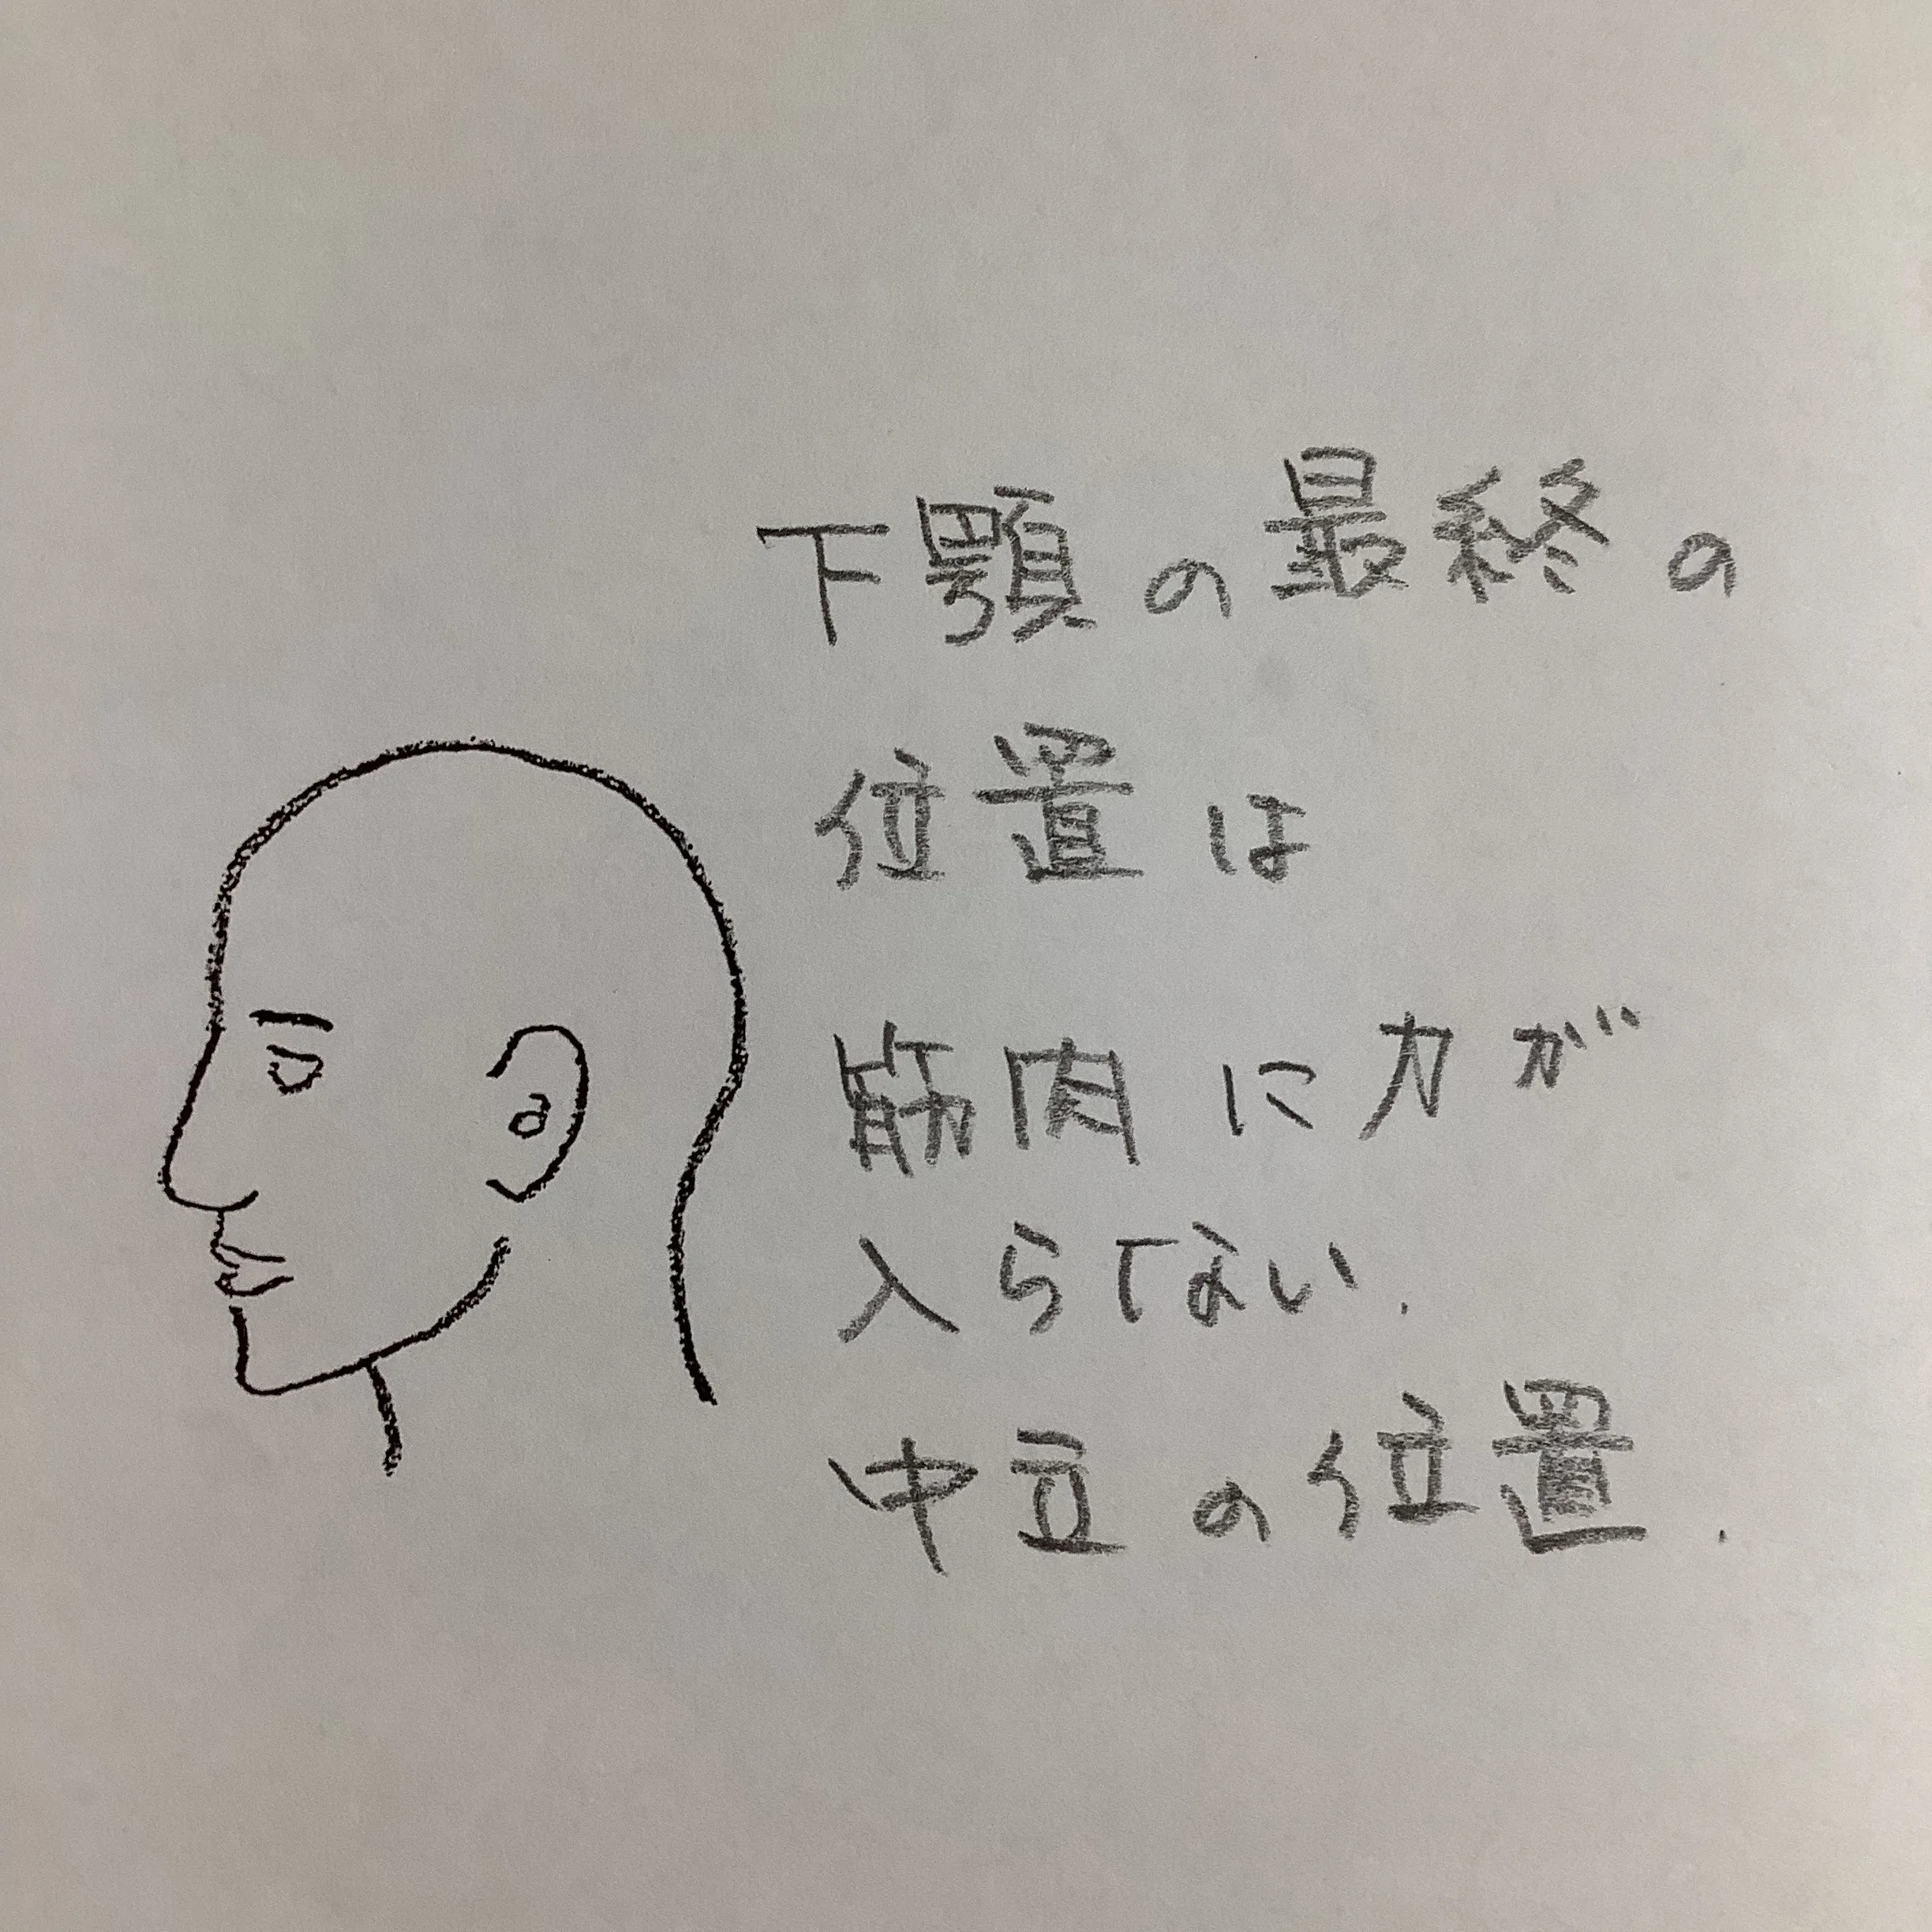 下顎の最終の
位置は
筋肉に力が
入らてない.
中立の位置.